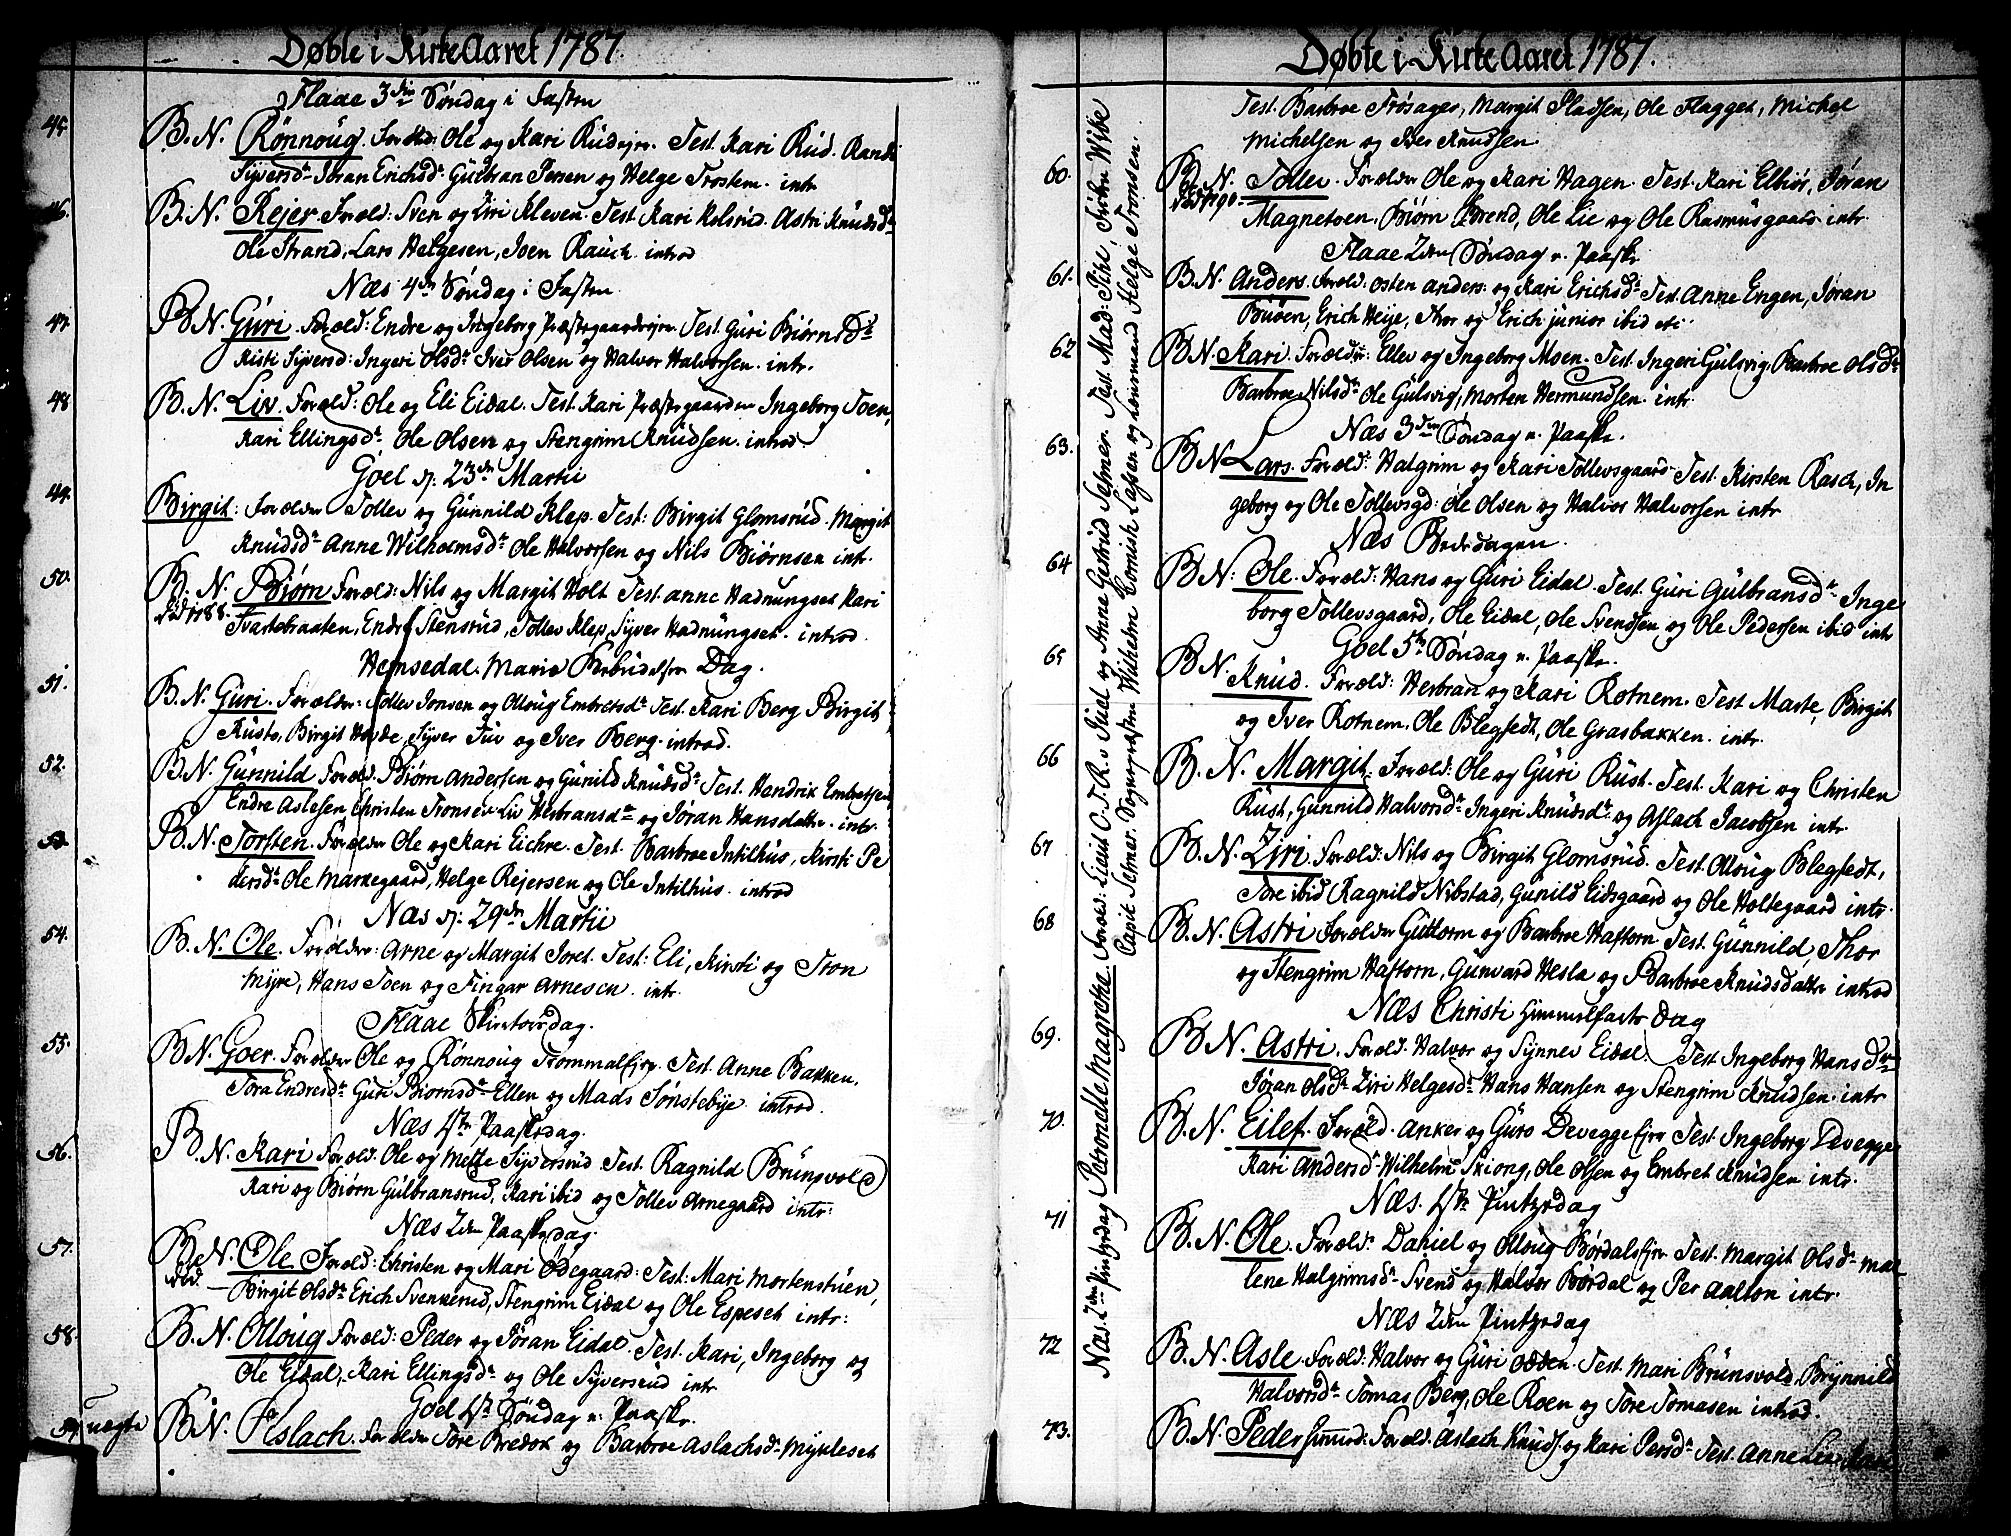 Døbte i Kirke Aaret 1787
Flaae 3die Søndag i Fasten
45. B. N. Rønnoug. Foræld: Ole og Kari Rud. Test. Kari Rud. Randi
Syversdr Jøran Erichsdr Gulbran Persen og Helge Trostem. intr
46. B. N. Rejer Foræld: Sven og Ziri Kleven. Test. Kari Kolsrud. Astri Knudsdr
Ole Strand, Lars Helgesen, Joen Rauch. introd
Næs 4de Søndag i Fasten
47. B. N. Guri. Foræld: Endre og Ingeborg Præstegaardsejer. Test. Guri Biørnsdr
Kisti Syversd: Ingeri Olsdr Iver Olsen og Halvor Halvorsen. intr.
48 B. N. Liv. Foræld: Ole og Eli Eidal. Test. Kari Præstegaarden Ingeborg Toen,
Kari Ellingsdr Ole Olsen og Stengrim Knudsen. introd
Goel d: 23de Martii
49. Birgit: Forælder Tollev og Gunnild Klep. Test: Birgit Glomsrud. Margit
Knudsdr Anne Wilholmsdr Ole Halvorsen og Nils Biørnsen intr.
50. B. N. Biørn Foræld: Nils og Margit Holt Test. Anne Hadnungset Kari
død 1788. Svartebraaten, Endre Stensrud, Tollev Klep, Syver Hadnungset. introd
Hemsedal. Mariæ Bebudelses Dag.
51. B. N. Guri. Forælder: Tollev Jonsen og Olloug Embretsdr Test. Kari Berg Birgit
Kusto, Birgit Hovde, Syver Tuv og Iver Berg. introd.
52. B. N. Gunnild Foræld: Biørn Andersen og Gunild Knudsdr Test. Hendrik Embretsen
Endre Aslesen, Christen Tronsen Liv Herbransdr og Jøran Hansdatter. intr.
53. B. N. Torsten. Forælder Ole og Kari Eichre. Test. Barbroe Intilhus, Kirsti Pe
dersdr Ole Markegaard, Helge Rejersen og Ole Intilhus. introd
Næs d: 29de Martii
54. B. N. Ole. Forælder: Arne og Margit Joret. Test: Eli, Kirsti og Tron
Myre, Hans Toen og Fingar Arnesen. intr.
Flaae Skiertorsdag.
55. B. N. Goer. Forælder Ole og Rønnoug Trommalsejer. Test. Anne Bakken.
Tora Endresdr Gure Biornsdr Ellen og Mads Sønstebye. introd.
Næs 1ste Paaskedag.
56. B. N. Kari Foræld. Ole og Mette Syversrud. Test. Ragnild Brunsvold
Kari og Biørn Gulbransrud, Kari ibid og Tollev Arnegaard intr:
Næs 2den Paaskedag.
57. B. N. Ole Foræld: Christen og Mari Ødegaard: Test: Mari Mortenstuen,
død. Birgit Olsdr Erich Svenkerud, Stengrim Eidal og Ole Espeset intr:
58. B. N. Olloug Foræld: Peder og Jøran Eidal. Test. Kari, Ingeborg og
Ole Eidal, Kari Ellingsdr og Ole Syversrud intr
Goel 1ste Søndag e: Paaske.
59. uægte B. N. Aslach. Forælder Tore Bredok og Barbroe Aslachsdr Mykleset
Døbte i Kirke Aaret 1787.
Test. Barbroe Frøsager, Margit Pladsen, Ole Flagget, Michel
Michelsen og Iver Knudsen.
60. B. N. Tollev. Forælder Ole og Kari Hagen. Test. Kari Elhiør, Jøran
død 1790. Magnetoen. Biørn Brend, Ole Lie og Ole Rasmusgaard. intr.
Flaae 2den Søndag e. Paaske
61. B. N. Anders. Foræld: Osten Anders: og Kari Erichsdr Test. Anne Engen, Jøran
Buøen, Erich Heije, Thor og Erich junior ibid etc.
62 B. N. Kari. Forælder: Ellev og Ingeborg Moen. Test. Ingeri Gulsvig, Barbroe Olsdr
Barbroe Nilsdr Ole Gulsvig, Morten Hermundsen. intr
Næs 3die Søndag e. Paaske.
63. B. N. Lars. Foræld: Halgrim og Kari Tollevsgaard. Test. Kirsten Rasch, In
geborg og Ole Tollevsgd: Ole Olsen og Halvor Halvorsen intr
Næs Bededagen.
64 B. N: Ole. Foræld: Hans og Guri Eidal. Test. Guri Gulbransdr Inge
borg Tollevsgaard, Ole Eidal, Ole Svendsen og Ole Pedersen ibid intr
Goel 5te Søndag e. Paaske.
65 B. N. Knud. Foræld: Herbran og Kari Rotnem. Test Marte, Birgit
og Iver Rotnem. Ole Blegsedt, Ole Grasbakken. intr.
66 B. N. Margit. Foræld: Ole og Guri Rust. Test. Kari og Christen
Rust, Gunnild Halvorsdr Ingeri Knudsdr og Aslach Jacobsen intr.
67 B. N. Ziri. Foræld: Nils og Birgit Glomsrud. Test. Olloug Blegsedt,
Tore ibid Ragnild Nibstad, Gunild Eidsgaard og Ole Holtegaard intr.
68 B. N. Astri Forælder Guttorm og Barbroe Haftorn Test. Gunnild, Thor
og Stengrim Haftorn, Gunvard Hesla og Barbroe Knudsdatter introd
Næs Christi Himmelfarts Dag
69. B. N. Astri. Foræld. Halvor og Synnev Eidal. Test. Ingeborg Hansdr
Jøran Olsdr Ziri Helgesdr Hans Hansen og Stengrim Knudsen. intr
70. B. N. Eilef. Foræld. Anker og Guro Deveggesejer Test. Ingeborg Devegge
Kari Andersdr Wilhelm Skiong, Ole Olsen og Embret Knudsen intr.
Næs. 1ste Pintzedag
71 B. N. Ole. Foræld. Daniel og Olloug Børdalsejer Test. Margit Olsdr Mar
lene Halgrimsdr Svend og Halvor Børdal og Per Aalton intr.
Næs 2den Pintzedag
72 B. N. Asle. Foræld: Halvor og Guri Odden. Test. Mari Brunsvold. Brynnild
Halvorsdr Tomas Berg, Ole Roen og Tore Tomasen introd.
73. B. N. Peder Foræld. Aslach Knuds. og Kari Persdr Test. Anne Lie, Kari
Næs. 2den Pintzedag Petronelle Magrethe Foræld: Lieut C. F. R. v Tuel og Anne Gertrud Sehner. Test. Mad. Pihl, Jfr. Wibe
Capit Sehner. Sognepræsten Wilhelm Cornish Lassen og Lensmand Helge Tronsen.